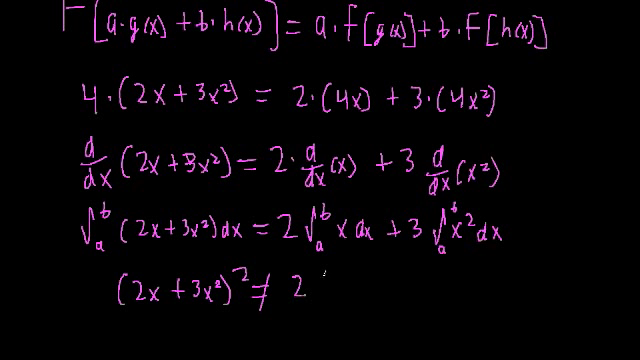 F[a·g(x) + b·h(x)] = a·f[g(x)] + b·F[h(x)]
4·(2x + 3x²) = 2·(4x) + 3·(4x²)
d/dx (2x + 3x²) = 2·d/dx (x) + 3 d/dx (x²)
∫ₐᵇ (2x + 3x²) dx = 2 ∫ₐᵇ x dx + 3 ∫ₐᵇ x² dx
(2x + 3x²)² ≠ 2